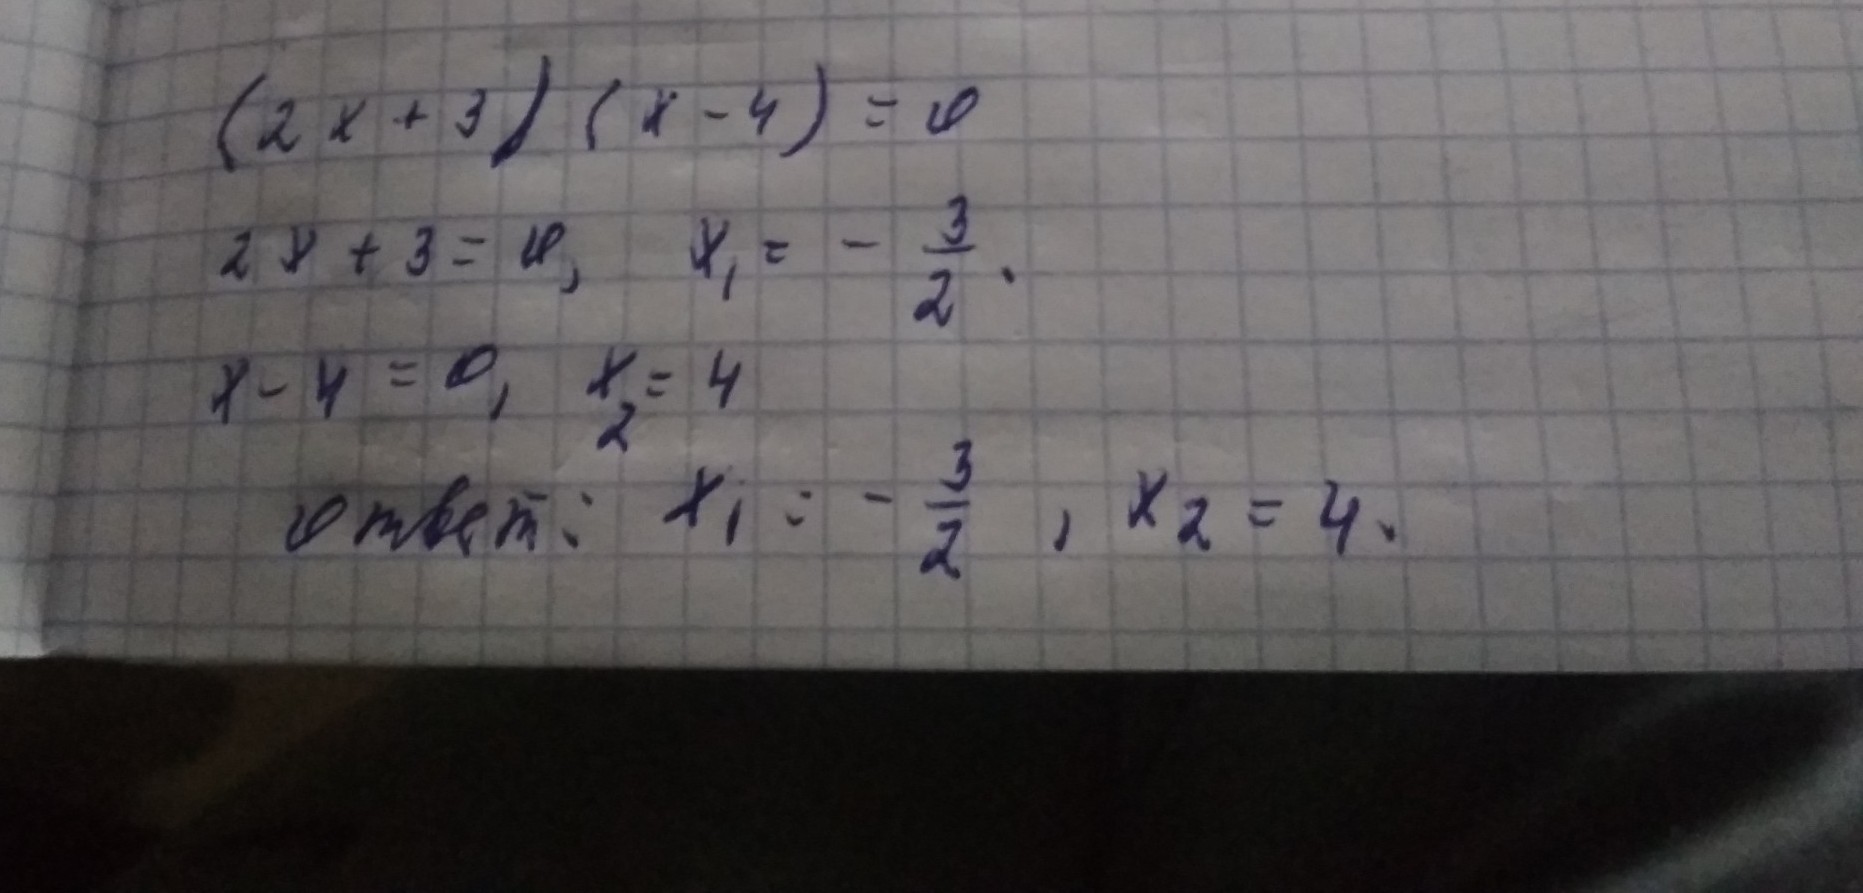 (2x + 3) (x - 4) = 0
2x + 3 = 0, x₁ = - 3/2.
x - 4 = 0, x₂ = 4
ответ: x₁ = - 3/2, x₂ = 4.